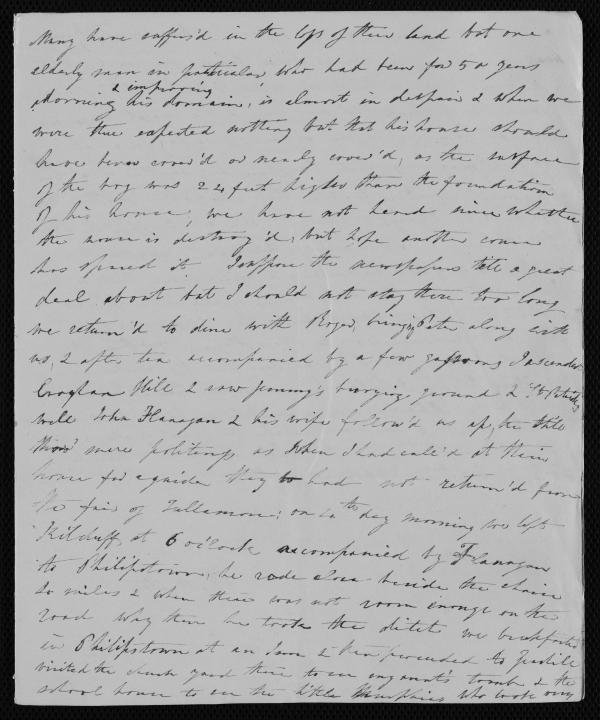 Many have suffer'd in the loss of their land but one
elderly man in particular, who had been for 50 years
& improving
adorning his domain, is almost in despair & when we
were there expected nothing but that his house should
have been cover'd or nearly cover'd, as the surface
of the bog was 24 feet higher than the foundation
of his house; we have not heard since whether
the house is destroy'd, but hope another course
has spared it. I suppose the newspapers tell a great
deal about but I should not stay there too long
we return'd to dine with Roger, bringing Peter along with
us, & after tea accompanied by a few gassoons I ascended
Croghan Hill & saw Jemmy's burying ground & St Patrick's
well John Flanagan & his wife follow'd us up, the
mere politeness as when I had call'd at their
house for a guide they had not return'd from
the fair of Tullamore: on 4th day morning we left
Kilduff at 6 o'clock accompanied by Flanagan
to Philipstown; he rode close beside the chaise
so miles & when there was not room enough on the
road why then he took the ditch we breakfasted
in Philipstown at an Inn & then proceeded to
visited the church yard there to see my aunt's tomb & the
school house to see the little Humphries who took my